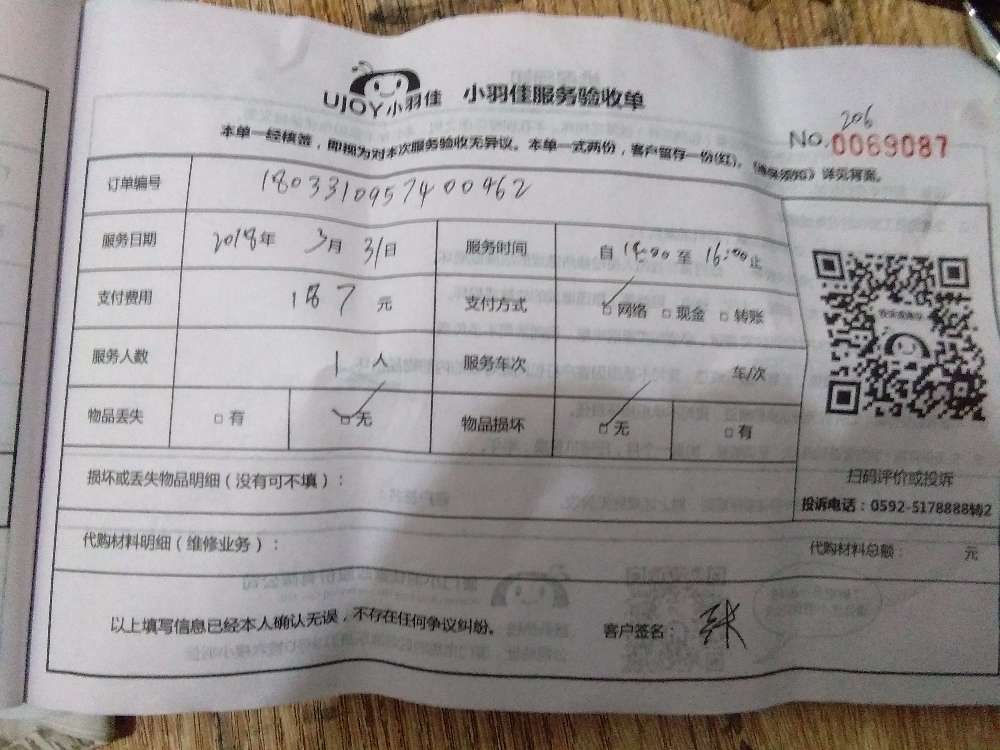 UJOY小羽佳 小羽佳服务验收单
206
No. 0069087
本单一经核签，即视为对本次服务验收无异议。本单一式两份，客户留存一份(红)。《维保须知》详见背面。
订单编号 1803310957400462
服务日期 2018年 3月 31日 服务时间 自 至 16:00止
支付费用 187 元 支付方式 □网络 □现金 □转账
服务人数 1 人 服务车次 车/次
物品丢失 □有 □无 物品损坏 □无 □有
扫码评价或投诉
投诉电话：0592-5178888转2
损坏或丢失物品明细（没有可不填）：
代购材料明细（维修业务）： 代购材料总额： 元
以上填写信息已经本人确认无误，不存在任何争议纠纷。 客户签名：